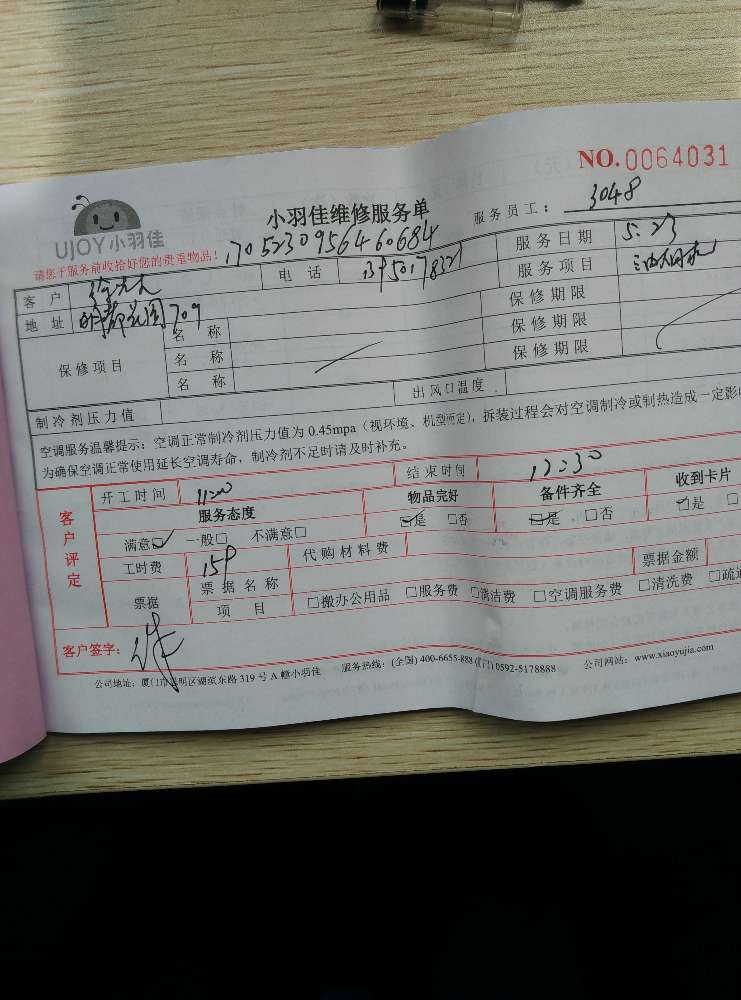 NO.0064031
UJOY小羽佳
小羽佳维修服务单
服务员工： 3048
请您于服务前收拾好您的贵重物品！
1705230956460684
客 户 电 话 服务日期 5.23
地 址 709 服务项目
保修项目 名 称 保修期限
名 称 保修期限
名 称 保修期限
制冷剂压力值 出风口温度
空调服务温馨提示：空调正常制冷剂压力值为 0.45mpa（视环境、机型而定），拆装过程会对空调制冷或制热造成一定影
为确保空调正常使用延长空调寿命，制冷剂不足时请及时补充。
客户评定
开工时间 11:00 结束时间 12:30
服务态度 物品完好 备件齐全 收到卡片
满意☑ 一般□ 不满意□ ☑是 □否 ☑是 □否 ☑是 □
工时费 159 代购材料费
票据 票据名称 票据金额
项 目 □搬办公用品 □服务费 □清洁费 □空调服务费 □清洗费 □疏通
客户签字：
公司地址：厦门市思明区湖滨东路 319 号 A 幢小羽佳 服务热线：(全国) 400-6655-888 (厦门) 0592-5178888 公司网站：www.xiaoyujia.com